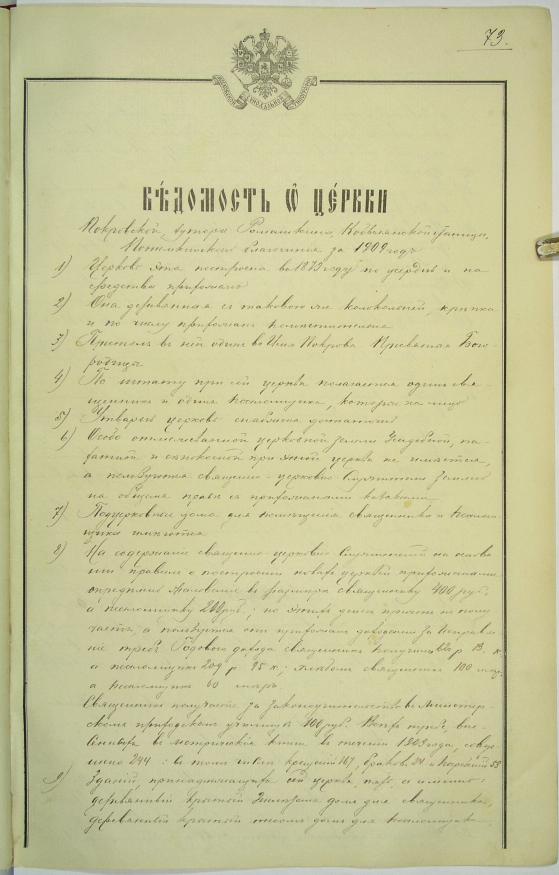 73.
ВѢ́ДОМОСТЬ Ѽ ЦЕ́РКВИ
Покровской, хутора Ромашкина, Кобылянской станицы,
Потемкинскаго благочинія за 1909 годъ
1) Церковь эта построена въ 1873 году по усердію и на
средства прихожанъ
2) Она деревянная съ таковою же колокольней, крѣпка
и по числу прихожанъ помѣстительна
3) Престолъ въ ней одинъ во Имя Покрова Пресвятыя Бого-
родицы
4) По штату при сей церкви полагается одинъ свя-
щенникъ и одинъ псаломщикъ, которые на лицо
5) Утварью церковь снабжена достаточно
6) Особо отмежеванной церковной земли усадебной, па-
хатной и сѣнокосной при этой церкви не имѣется,
а пользуются священно-церковно-служители землею
на общемъ правѣ съ прихожанами казаками
7) Подцерковные дома для помѣщенія священника и псалом-
щика имѣются
8) На содержаніе священно-церковно-служителей на основа-
ніи правилъ о построеніи новыхъ церквей прихожанами
опредѣлено жалованье въ размѣрѣ священнику 400 руб.
а псаломщику 200 руб.; но этихъ денегъ причтъ не полу-
чаетъ, а пользуется отъ прихожанъ доходами за исправле-
ніе требъ. Годового дохода священникъ получилъ р 13 к
а псаломщикъ 209 р 25 к.; хлѣбомъ священникъ 100 мѣръ
а псаломщикъ 60 мѣръ.
Священникъ получаетъ за законоучительство въ министер-
скомъ приходскомъ училищѣ 100 руб. Всѣхъ требъ, впи-
санныхъ въ метрическія книги въ теченіи 1909 года, совер-
шено 244: въ томъ числѣ крещеній 167, браковъ 24 и погребеній 53
9) Зданій, принадлежащихъ сей церкви, а именно:
деревянный крытый домъ для священника,
деревянный крытый тесомъ домъ для псаломщика